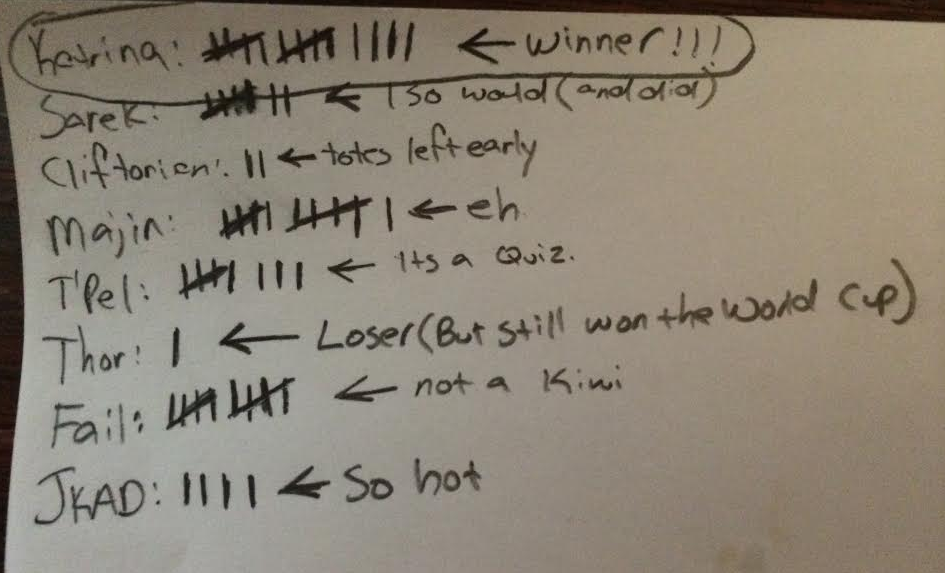 Katrina: 𝍸 𝍸 |||| ← Winner!!!
Sarek: 𝍸 || ← I so would (and did)
Cliftorian: || ← totes left early
Majin: 𝍸 𝍸 | ← eh
T'Pel: 𝍸 ||| ← Its a Quiz.
Thor: | ← Loser (But still won the World Cup)
Fail: 𝍸 𝍸 ← not a Kiwi
JKAD: |||| ← So hot